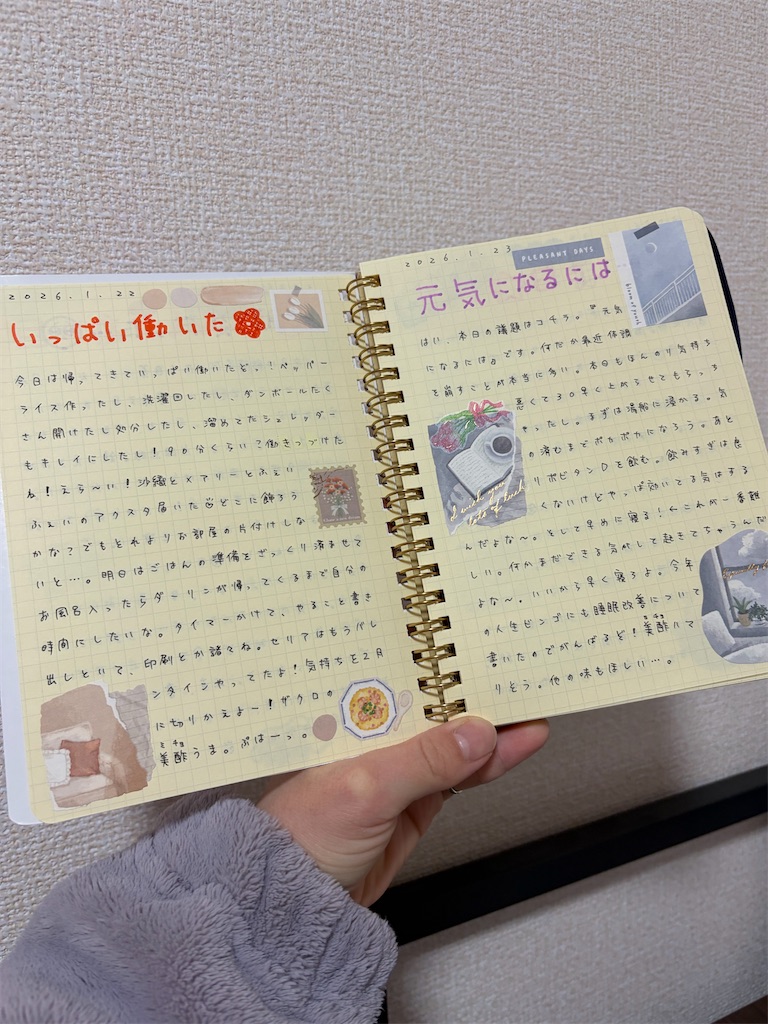 2026.1.22
いっぱい働いた
今日は帰ってきていっぱい働いたど。!ペッパー
ライス作ったし、洗濯回したし、ダンボールたく
さん開けたし処分したし、溜めてたシュレッダー
もキレイにしたし!90分くらい?働きつづけた
ね!えら〜い!沙織とメアリーとふぇい
ふぇいのアクスタ届いたどこに飾ろう
かな?でもそれよりお部屋の片付けしな
いと…。明日はごはんの準備をざっくり済ませて
お風呂入ったらダーリンが帰ってくるまで自分の
時間にしたいな。タイマーかけて、やること書き
出しといて、印刷とか諸々ね。セリアはもうバレ
ンタインやってたよ!気持ちを2月
に切りかえよー!ザクロの
ミチョ
美酢うま。ぷはーっ。
2026.1.23
PLEASANT DAYS
元気になるには
はい、本日の議題はコチラ。『元気
になるには』です。何だか最近体調
を崩すことが本当に多い。本日もほんのり気持ち
悪くて30早く上がらせてもらっち
ゃったし。まずは湯船に浸かる。気
の済むまでポカポカになろう。あと
リポビタンDを飲む。飲みすぎは良
くないけどやっぱ効いてる気はする
んだよな〜。そして早めに寝る!←これが一番難
しい。何かまだできる気がして起きてちゃうんだ
よな〜。いいから早く寝ろよ。今年
の人生ビンゴにも睡眠改善について
書いたのでがんばるど!美酢ハマ
ミチョ
りそう。他の味もほしい…。
I wish you
lots of luck